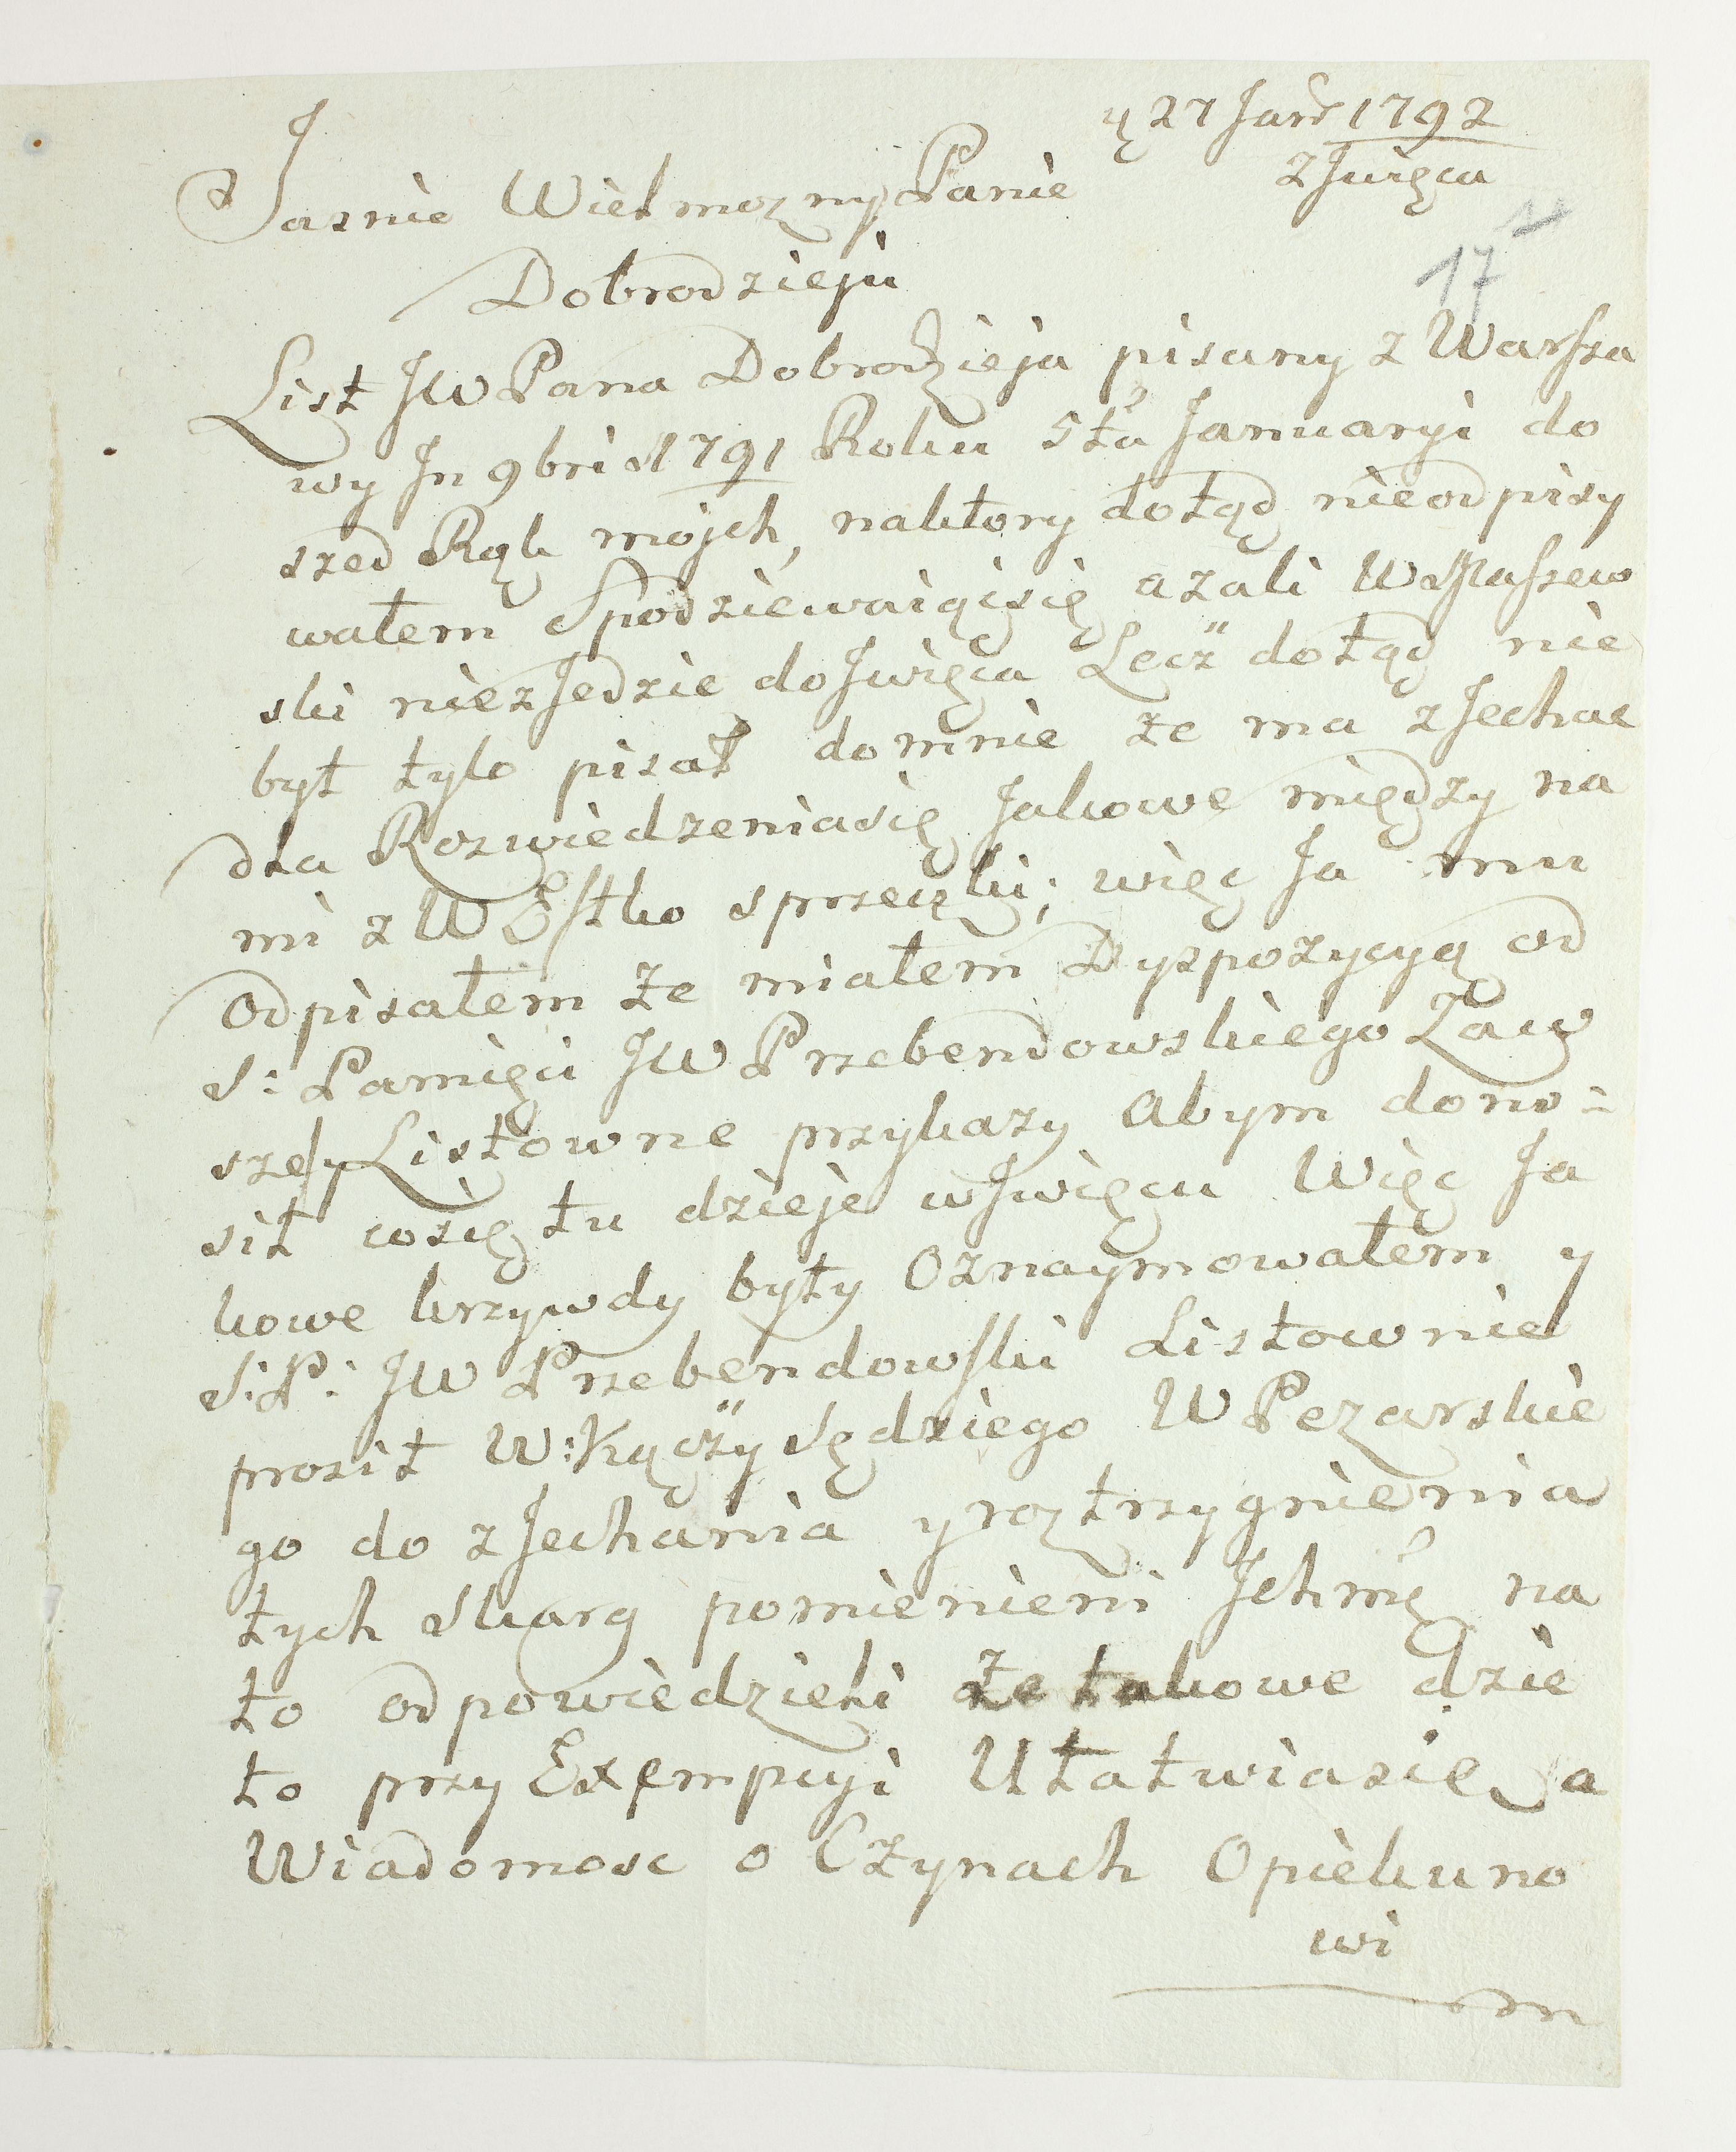 ą 27 Janr 1792
z Jwięca
17
Jasnie Wielmozny Panie
Dobrodzieju
List JW Pana Dobrodzieja pisany z Warsza
wy In 9bri 1791 Roku 5ta Januaryi do
szed Rąk mojch, naktory dotąd nieodpisy
wałem Spodziewaiącsię azali W
ski niezJedzie doJwięca Lecz dotąd nie
był tylo pisał domnie że ma zJechac
dla Rozwiedzeniasię Jakowe między na
mi z W sprzeczki, więc Ja mu
Odpisałem że miałem Dyspozycyą od
S: Pamięci JW Przebendowskiego Zaw
szesz Listowne przykazy Abym dono=
sił cosię tu dzieje wJwięcu Więc Ja
kowe krzywdy były Oznaymowałem y
S:P: JW Przebendowski Listownie
prosił W: Kączy Sędziego W Pezarskie
go do zJechania y roztrzygnienia
tych Skarg pomienieni Jchmę na
to odpowiedzieli że takowe dzie
ło przy Exempcyi Ułatwiasię a
Wiadomosc o Czynach Opiekuno
wi